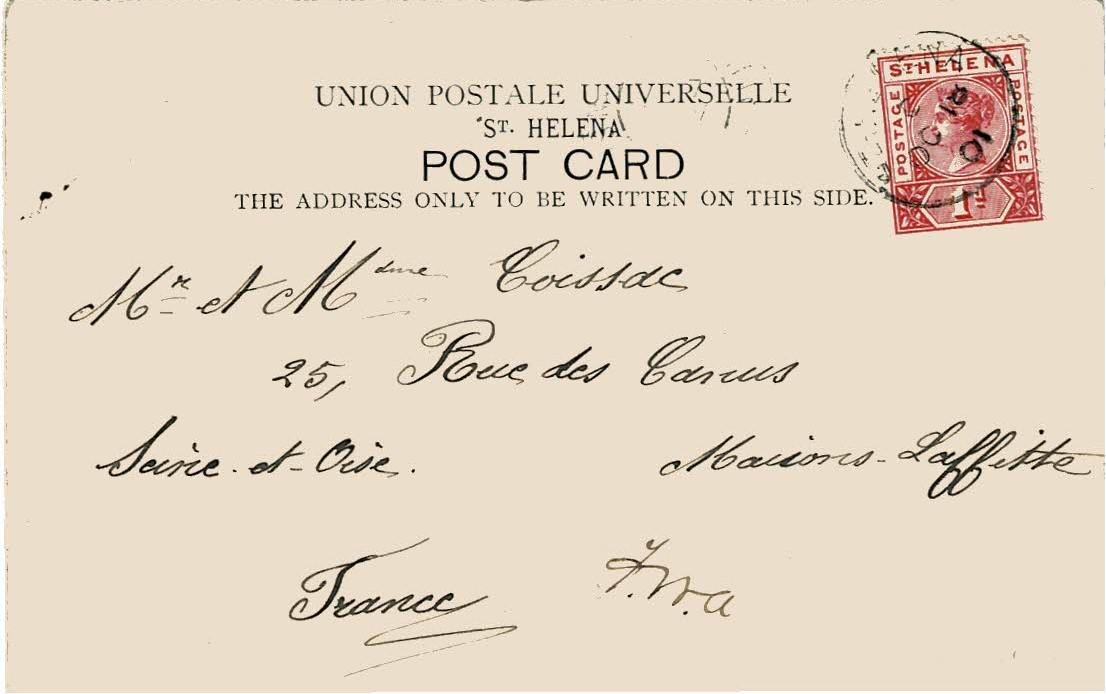 UNION POSTALE UNIVERSELLE
ST. HELENA
POST CARD
THE ADDRESS ONLY TO BE WRITTEN ON THIS SIDE.
ST HELENA
POSTAGE
POSTAGE
1D
OC 18
10
Mr et Mdme Coissac
25, Rue des Canus
Seine-et-Oise.
Maisons-Laffitte
France